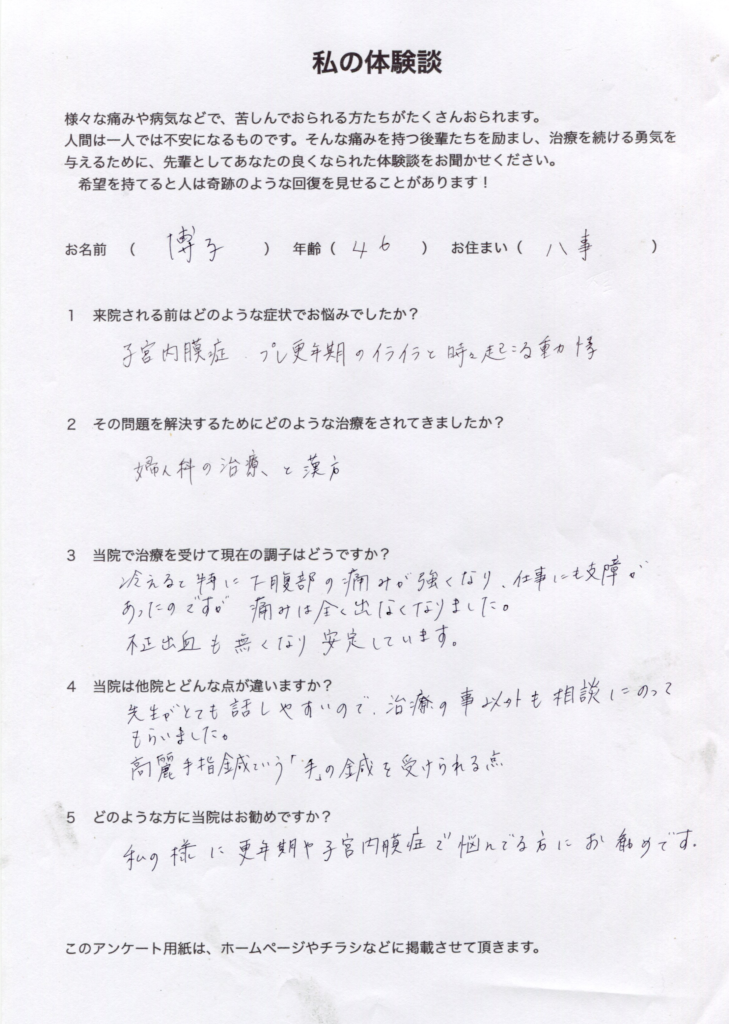 私の体験談
様々な痛みや病気などで、苦しんでおられる方たちがたくさんおられます。
人間は一人では不安になるものです。そんな痛みを持つ後輩たちを励まし、治療を続ける勇気を
与えるために、先輩としてあなたの良くなられた体験談をお聞かせください。
希望を持てると人は奇跡のような回復を見せることがあります！
お名前 （ 博子 ） 年齢（ 46 ） お住まい（ 八事 ）
1 来院される前はどのような症状でお悩みでしたか？
子宮内膜症、プレ更年期のイライラと時々起こる動悸
2 その問題を解決するためにどのような治療をされてきましたか？
婦人科の治療、と漢方
3 当院で治療を受けて現在の調子はどうですか？
冷えると特に下腹部の痛みが強くなり、仕事にも支障が
あったのですが 痛みは全く出なくなりました。
不正出血も無くなり安定しています。
4 当院は他院とどんな点が違いますか？
先生がとても話しやすいので、治療の事以外も相談にのって
もらいました。
高麗手指鍼という「手」の鍼を受けられる点
5 どのような方に当院はお勧めですか？
私の様に更年期や子宮内膜症で悩んでる方にお勧めです。
このアンケート用紙は、ホームページやチラシなどに掲載させて頂きます。